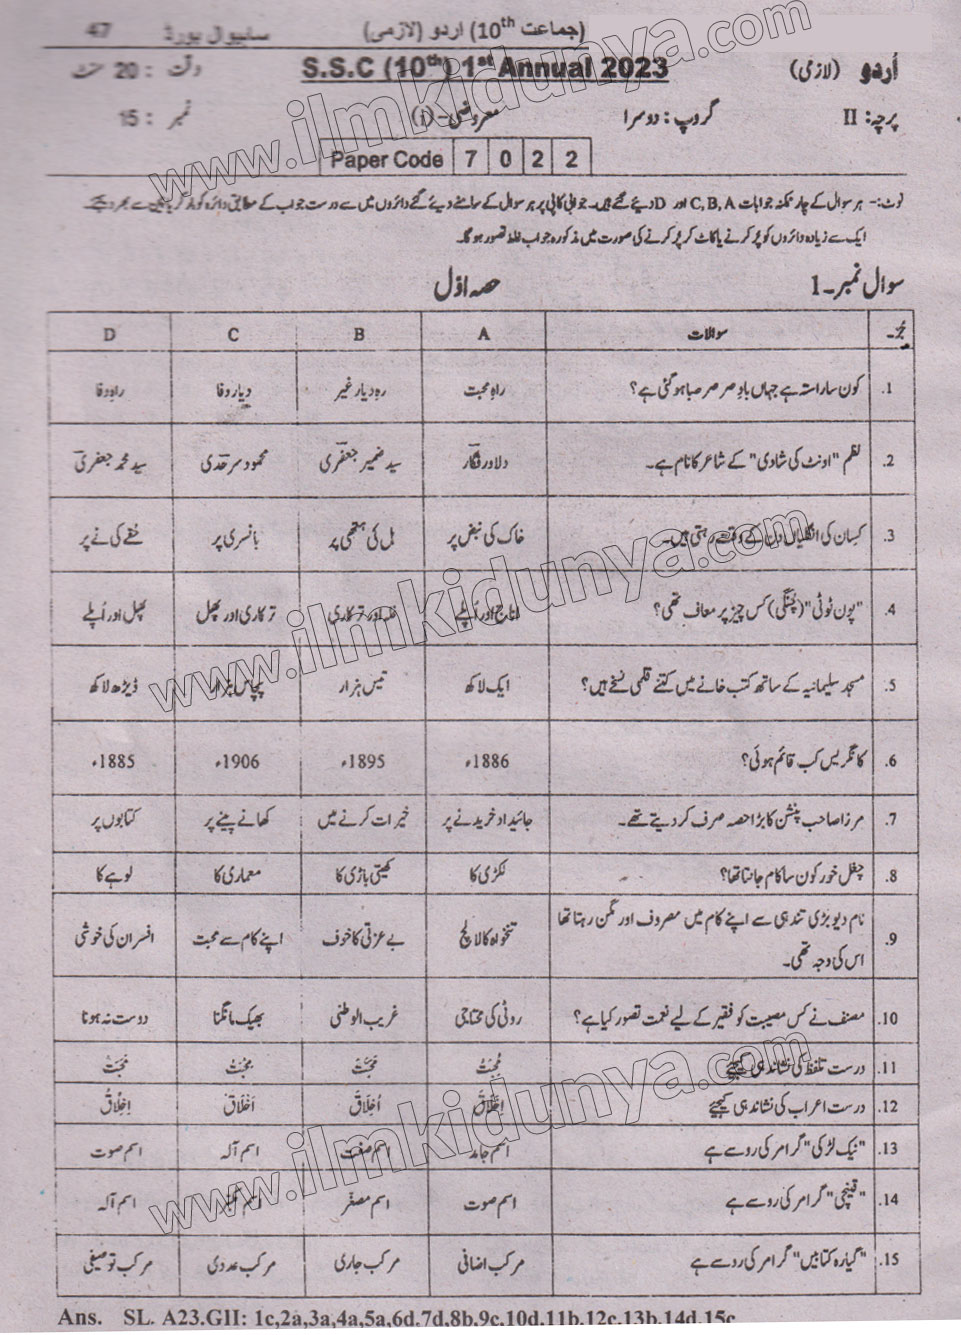 47 ساہیوال بورڈ (جماعت 10th) اردو (لازمی)
اُردو (لازمی) S.S.C (10th) 1st Annual 2023 وقت : 20 منٹ
پرچہ: II گروپ: دوسرا معروضی-(i) نمبر : 15
Paper Code 7 0 2 2
نوٹ:- ہر سوال کے چار ممکنہ جوابات C,B,A اور D دیئے گئے ہیں۔ جوابی کاپی پر ہر سوال کے سامنے دیئے گئے دائروں میں سے درست جواب کے مطابق دائرہ کو مارکر یا پین سے بھر دیجئے۔
ایک سے زیادہ دائروں کو پُر کرنے یا کاٹ کر پُر کرنے کی صورت میں مذکورہ جواب غلط تصور ہوگا۔
سوال نمبر۔1 حصہ اوّل
جُز۔ سوالات A B C D
1. کون سا راستہ ہے جہاں بادِ صرصر صبا ہوگئی ہے؟ راہِ محبت رہِ دیارِ غیر دیارِ وفا راہِ وفا
2. نظم "اونٹ کی شادی" کے شاعر کا نام ہے۔ دلاور فگار سید ضمیر جعفری محمود سرحدی سید محمد جعفری
3. کسان کی انگلیاں دن کے وقت رہتی ہیں۔ خاک کی نبض پر ہل کی ہتھی پر بانسری پر حقے کی نے پر
4. "پون ٹوٹی" (چُنگی) کس چیز پر معاف تھی؟ اناج اور اُپلے غلہ اور ترکاری ترکاری اور پھل پھل اور اُپلے
5. مسجد سلیمانیہ کے ساتھ کتب خانے میں کتنے قلمی نسخے ہیں؟ ایک لاکھ تیس ہزار پچاس ہزار ڈیڑھ لاکھ
6. کانگریس کب قائم ہوئی؟ 1886ء 1895ء 1906ء 1885ء
7. مرزا صاحب پنشن کا بڑا حصہ صرف کر دیتے تھے۔ جائیداد خریدنے پر خیرات کرنے میں کھانے پینے پر کتابوں پر
8. چغل خور کون سا کام جانتا تھا؟ لکڑی کا کھیتی باڑی کا معماری کا لوہے کا
9. نام دیو بڑی تندہی سے اپنے کام میں مصروف اور مگن رہتا تھا
اس کی وجہ تھی۔ تنخواہ کا لالچ بے عزتی کا خوف اپنے کام سے محبت افسران کی خوشی
10. مصنف نے کس مصیبت کو فقیر کے لیے نعمت تصور کیا ہے؟ روٹی کی محتاجی غریب الوطنی بھیک مانگنا دوست نہ ہونا
11. درست تلفظ کی نشاندہی کیجیئے
12. درست اعراب کی نشاندہی کیجیئے
13. "نیک لڑکی" گرامر کی رو سے ہے اسم جامد اسم صفت اسم آلہ اسم صوت
14. "قینچی" گرامر کی رو سے ہے اسم صوت اسم مصغر اسم مکبر اسم آلہ
15. "گیارہ کتابیں" گرامر کی رو سے ہے مرکب اضافی مرکب جاری مرکب عددی مرکب توصیفی
Ans. SL. A23.GII: 1c,2a,3a,4a,5a,6d,7d,8b,9c,10d,11b,12c,13b,14d,15c
www.ilmkidunya.com
www.ilmkidunya.com
www.ilmkidunya.com